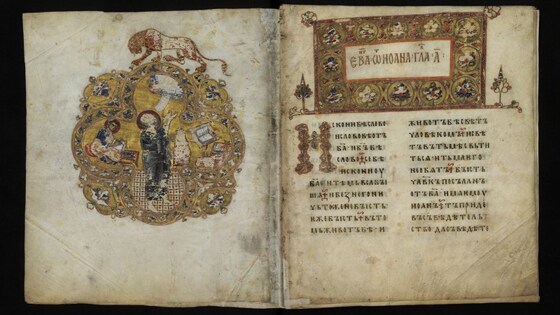 ЕВА · ѾТ ИОАНА · ГЛА · А҃ ·
ИСКОНИ БѢ СЛОВО
И СЛОВО БѢ ОТЪ
Б҃А И Б҃Ъ БѢ
СЛОВО · СЕ БѢ
ИСКОНИ ОУ
Б҃А И ТѢМЬ ВЬСѦ БꙐ
ША · И БЕЖ НЕГО НИ
ЧЬТОЖЕ НЕ БꙐСТЬ ·
ѤЖЕ БꙐСТЬ · ВЪ ТО
МЬ ЖИВОТЪ БѢ · И
ЖИВОТЪ БѢ СВѢ
ТЪ ЧЛОВѢКОМЪ · И СВѢ
ТЪ ВЪ ТЬМѢ СВЬТИ
ТЬСѦ · И ТЬМА ѤГО
НЕ ОБѦТЪ · БꙐСТЬ
ЧЛ҃ВКЪ ПОСЪЛАНЪ
ОТЪ Б҃А · ИМѦ ѤМОУ
ИОАНЪ · ТЪ ПРИДЕ
ВЪ СЪВѢДѢТЕЛЬ
СТВО · ДА СЪВѢДѢТЕ